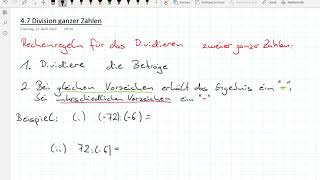 4.7 Division ganzer Zahlen
Rechenregeln für das Dividieren zweier ganzer Zahlen:
1. Dividiere die Beträge
2. Bei gleichen Vorzeichen erhält das Ergebnis ein "+",
bei unterschiedlichen Vorzeichen ein "-"
Beispiel: (i) (-72):(-6) =
(ii) 72:(-6) =